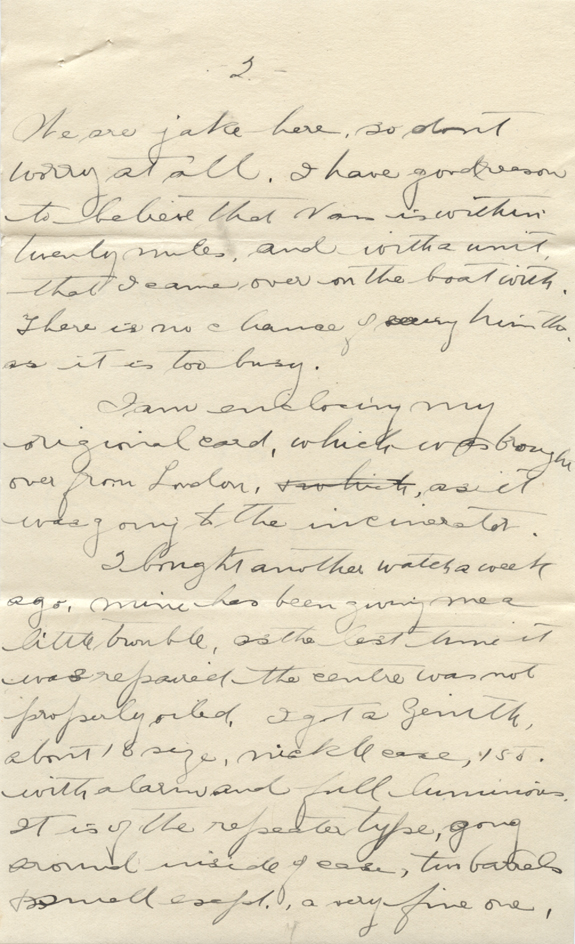 2.
We are jake here, so dont
worry at all. I have good reason
to believe that Van is within
twenty miles, and with a unit,
that I came over on the boat with.
There is no chance of seeing him tho,
as it is too busy.
I am enclosing my
origional card, which was brought
over from London, as it
was going to the incinerator.
I bought another watch a week
ago, mine has been giving me a
little trouble, as the last time it
was repaired the centre was not
properly oiled. I got a Zenith,
about 18 size, nickle case, 15 J.
with alarm and full luminous.
It is of the repeater type, gong
around inside of case, two barrels
small escpt., a very fine one,